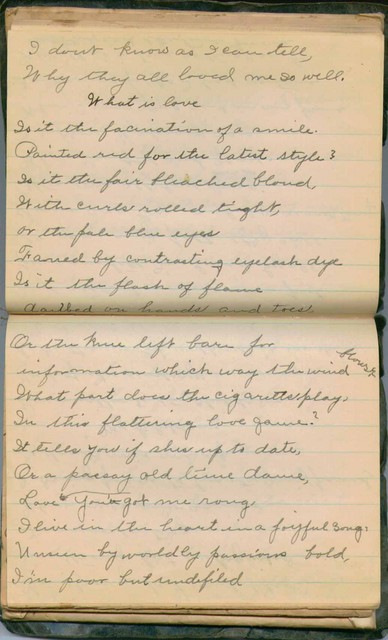 I dont know as I can tell,
Why they all loved me so well.
What is love
Is it the facination of a smile.
Painted red for the latest style?
Is it the fair bleached blond,
With curls rolled tight,
or the pale blue eyes
Famed by contrasting eyelash dye
Is it the flash of flame
on hands and toes.
Or the knee left bare for
information which way the wind blows?
What part does the cigarette play,
In this flattering love game?
It tells you if shes up to date,
Or a old time dame,
Love You've got me rong
I live in the heart in a joyful song:
Unseen by worldly passions bold,
I'm poor but undefiled